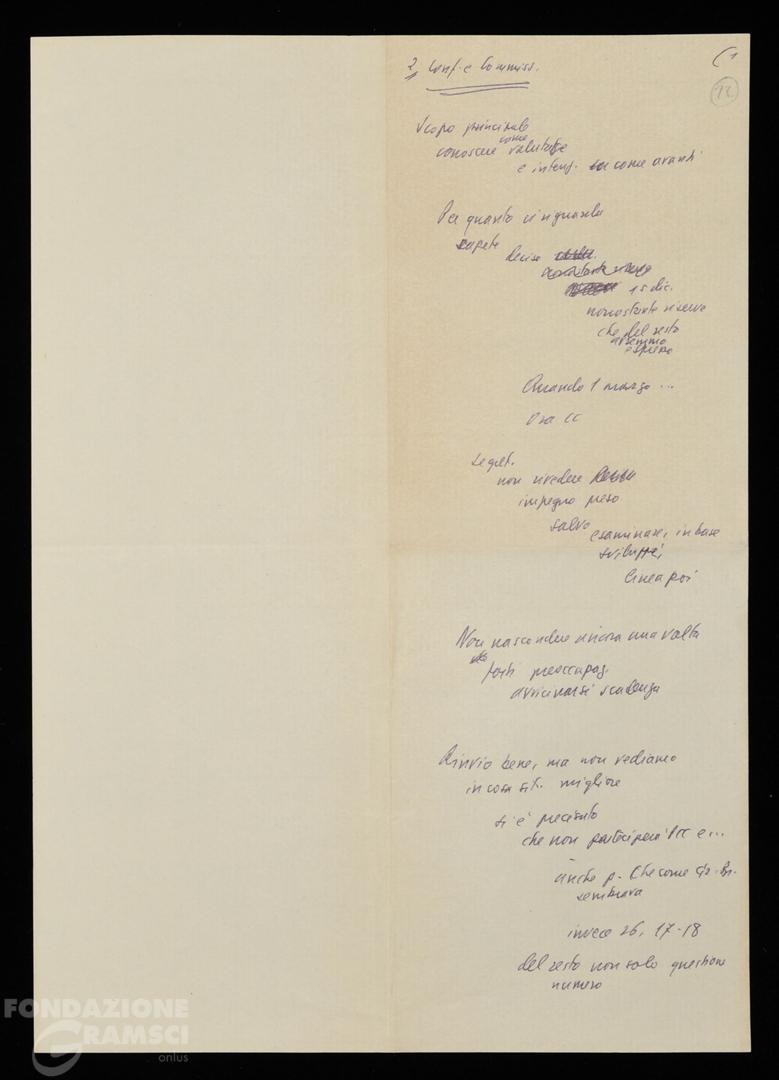 (1
12
2) Conf. e Commiss.
Scopo principale
come
conoscere valutate
e intenz. come avanti
Per quanto ci riguarda
sapete
deciso
15 dic.
nonostante riserve
che del resto
avemmo
espresso
Quando 1 marzo ...
Ora CC
Segret.
non rivedere
impegno preso
salvo
esaminare, in base
sviluppi,
linea poi
Non nascondere ancora una volta
forti preoccupaz.
avvicinarsi scadenza
Rinvio bene, ma non vediamo
in cosa sit. migliore
si è precisato
che non parteciperà PCC e...
anche p. che come
sembrava
invece 26, 17-18
del resto non solo questione
numero
FONDAZIONE
GRAMSCI
onlus